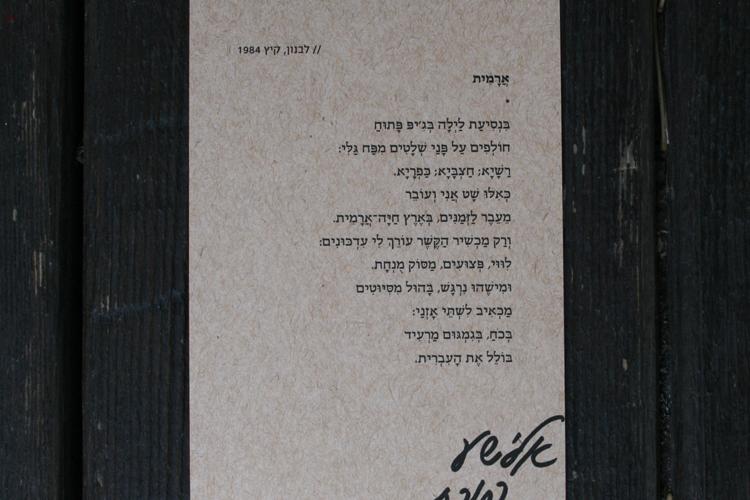 // לבנון, קיץ 1984
אֲרָמִית
*
בִּנְסִיעַת לַיְלָה בְּגִ'יפּ פָּתוּחַ
חוֹלְפִים עַל פָּנַי שְׁלָטִים מִפַּח גַּלִּי:
רַשָׁיָא; חַצְבַּיָא; כַּפְרָיָא.
כְּאִלּוּ שָׁט אֲנִי וְעוֹבֵר
מֵעֵבֶר לַזְּמַנִּים, בְּאֶרֶץ חַיָּה־אֲרָמִית.
וְרַק מַכְשִׁיר הַקֶּשֶׁר עוֹרֵךְ לִי עִדְכּוּנִים:
לִוּוּי, פְּצוּעִים, מַסּוֹק מֻנְחָת.
וּמִישֶׁהוּ נִרְגָּשׁ, בָּהוּל מִסִּיּוּטִים
מַכְאִיב לִשְׁתֵּי אָזְנַי:
בְּכֹחַ, בְּגִמְגּוּם מַרְעִיד
בּוֹלֵל אֶת הָעִבְרִית.
אלישע